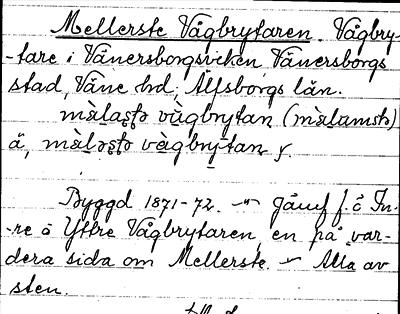 Mellerste Vågbrytaren. Vågbry-
-tare i Vänersborgsviken Vänersborgs
stad, Väne hd; Älfsborgs län.
mä̀lastə vàgbrytan (mä̀lamstə)
ä, mä̀ləstə vàgbrytan f.
Byggd 1871-72. jämf f. ö In-
-re o Yttre Vågbrytaren, en på var-
dera sida om Mellerste. Alla av
sten.